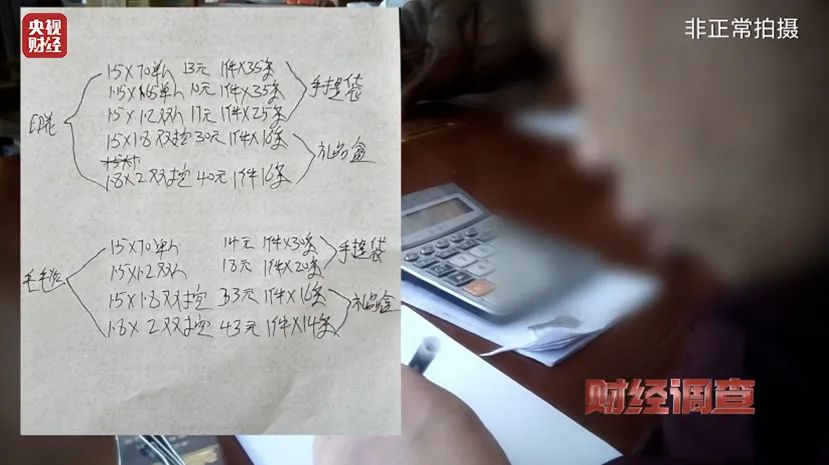 央视财经
非正常拍摄
印花
1.5×70单人 13元 1件×35条
1.15×1.65单人 10元 1件×35条
1.5×1.2双人 17元 1件×25条
手提袋
1.5×1.8双控 30元 1件×18条
1.8×2双控 40元 1件16条
礼品盒
1.5×70单人 14元 1件×30条
1.5×1.2双人 18元 1件×20条
手提袋
1.5×1.8双控 33元 1件×16条
1.8×2双控 43元 1件×14条
礼品盒
财经调查